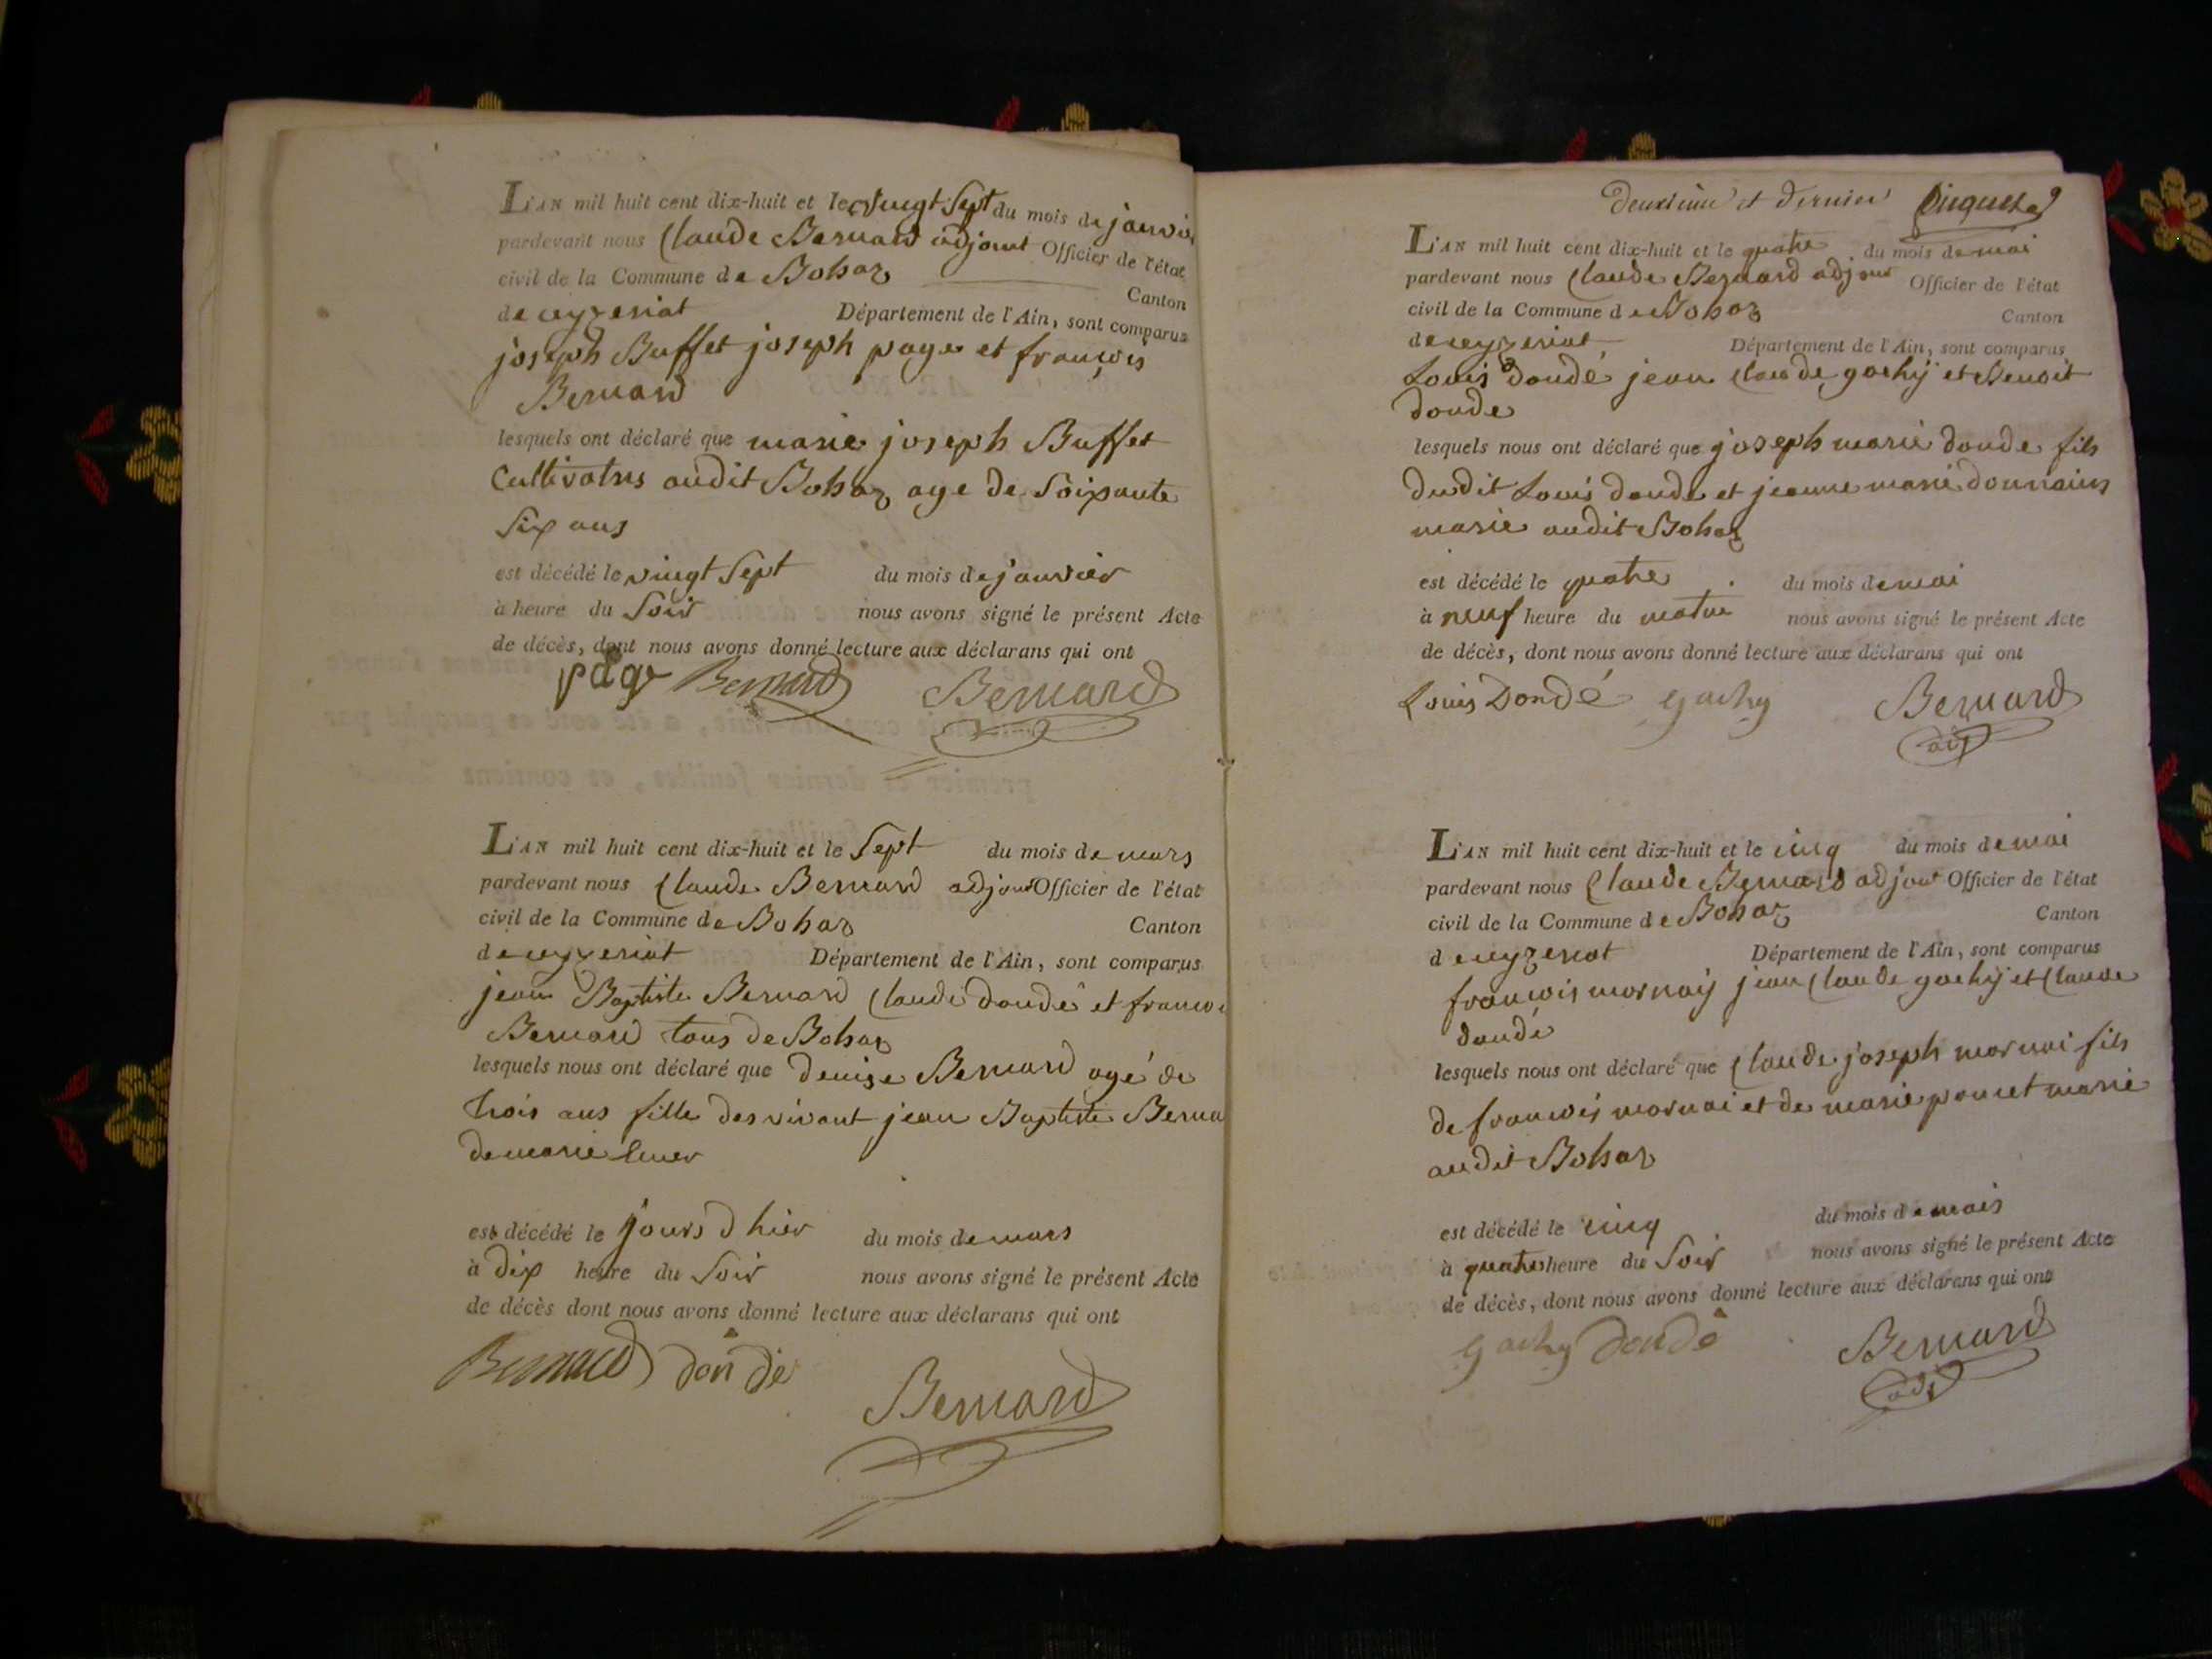 L'AN mil huit cent dix-huit et le vingt Sept du mois de janvi
pardevant nous Claude Bernard adjoint Officier de l'état
civil de la Commune de Bohaz Canton
de ceyzeriat Département de l'Ain, sont comparus
joseph Buffet joseph page et françois
Bernard
lesquels ont déclaré que marie joseph Buffet
Cultivatris audit Bohaz age de Soixante
Six ans
est décédé le vingt Sept du mois de janvier
à heure du Soir nous avons signé le présent Acte
de décès, dont nous avons donné lecture aux déclarans qui ont
page Bernard Bernard
L'AN mil huit cent dix-huit et le Sept du mois de mars
pardevant nous Claude Bernard adjoint Officier de l'état
civil de la Commune de Bohaz Canton
de ceyzeriat Département de l'Ain, sont comparus
jean Baptiste Bernard Claude dondé et franço
Bernard tous de Bohaz
lesquels nous ont déclaré que denise Bernard agé de
trois ans fille des vivant jean Baptiste Berna
de marie
est décédé le jours d hier du mois de mars
à dix heure du Soir nous avons signé le présent Acte
de décès dont nous avons donné lecture aux déclarans qui ont
Bernard dondé
Bernard
deuxieme et dernier
L'AN mil huit cent dix-huit et le quatre du mois de mai
pardevant nous Claude Bernard adjoint Officier de l'état
civil de la Commune de Bohaz Canton
de ceyzeriat Département de l'Ain, sont comparus
Louis dondé jean Claude gachy et Benoit
donde
lesquels nous ont déclaré que joseph marie donde fils
dudit Louis donde et jeanne marie
marie audit Bohaz
est décédé le quatre du mois de mai
à neuf heure du matin nous avons signé le présent Acte
de décès, dont nous avons donné lecture aux déclarans qui ont
Louis Dondé gachy Bernard
adj
L'AN mil huit cent dix-huit et le cinq du mois de mai
pardevant nous Claude Bernard adjoint Officier de l'état
civil de la Commune de Bohaz Canton
de ceyzeriat Département de l'Ain, sont comparus
françois mornay jean Claude gachy et Claude
dondé
lesquels nous ont déclaré que Claude joseph mornai fils
de françois mornai et de marie poncet marie
audit Bohaz
est décédé le cinq du mois de mais
à quatre heure du Soir nous avons signé le présent Acte
de décès, dont nous avons donné lecture aux déclarans qui ont
gachy dondé Bernard
adj